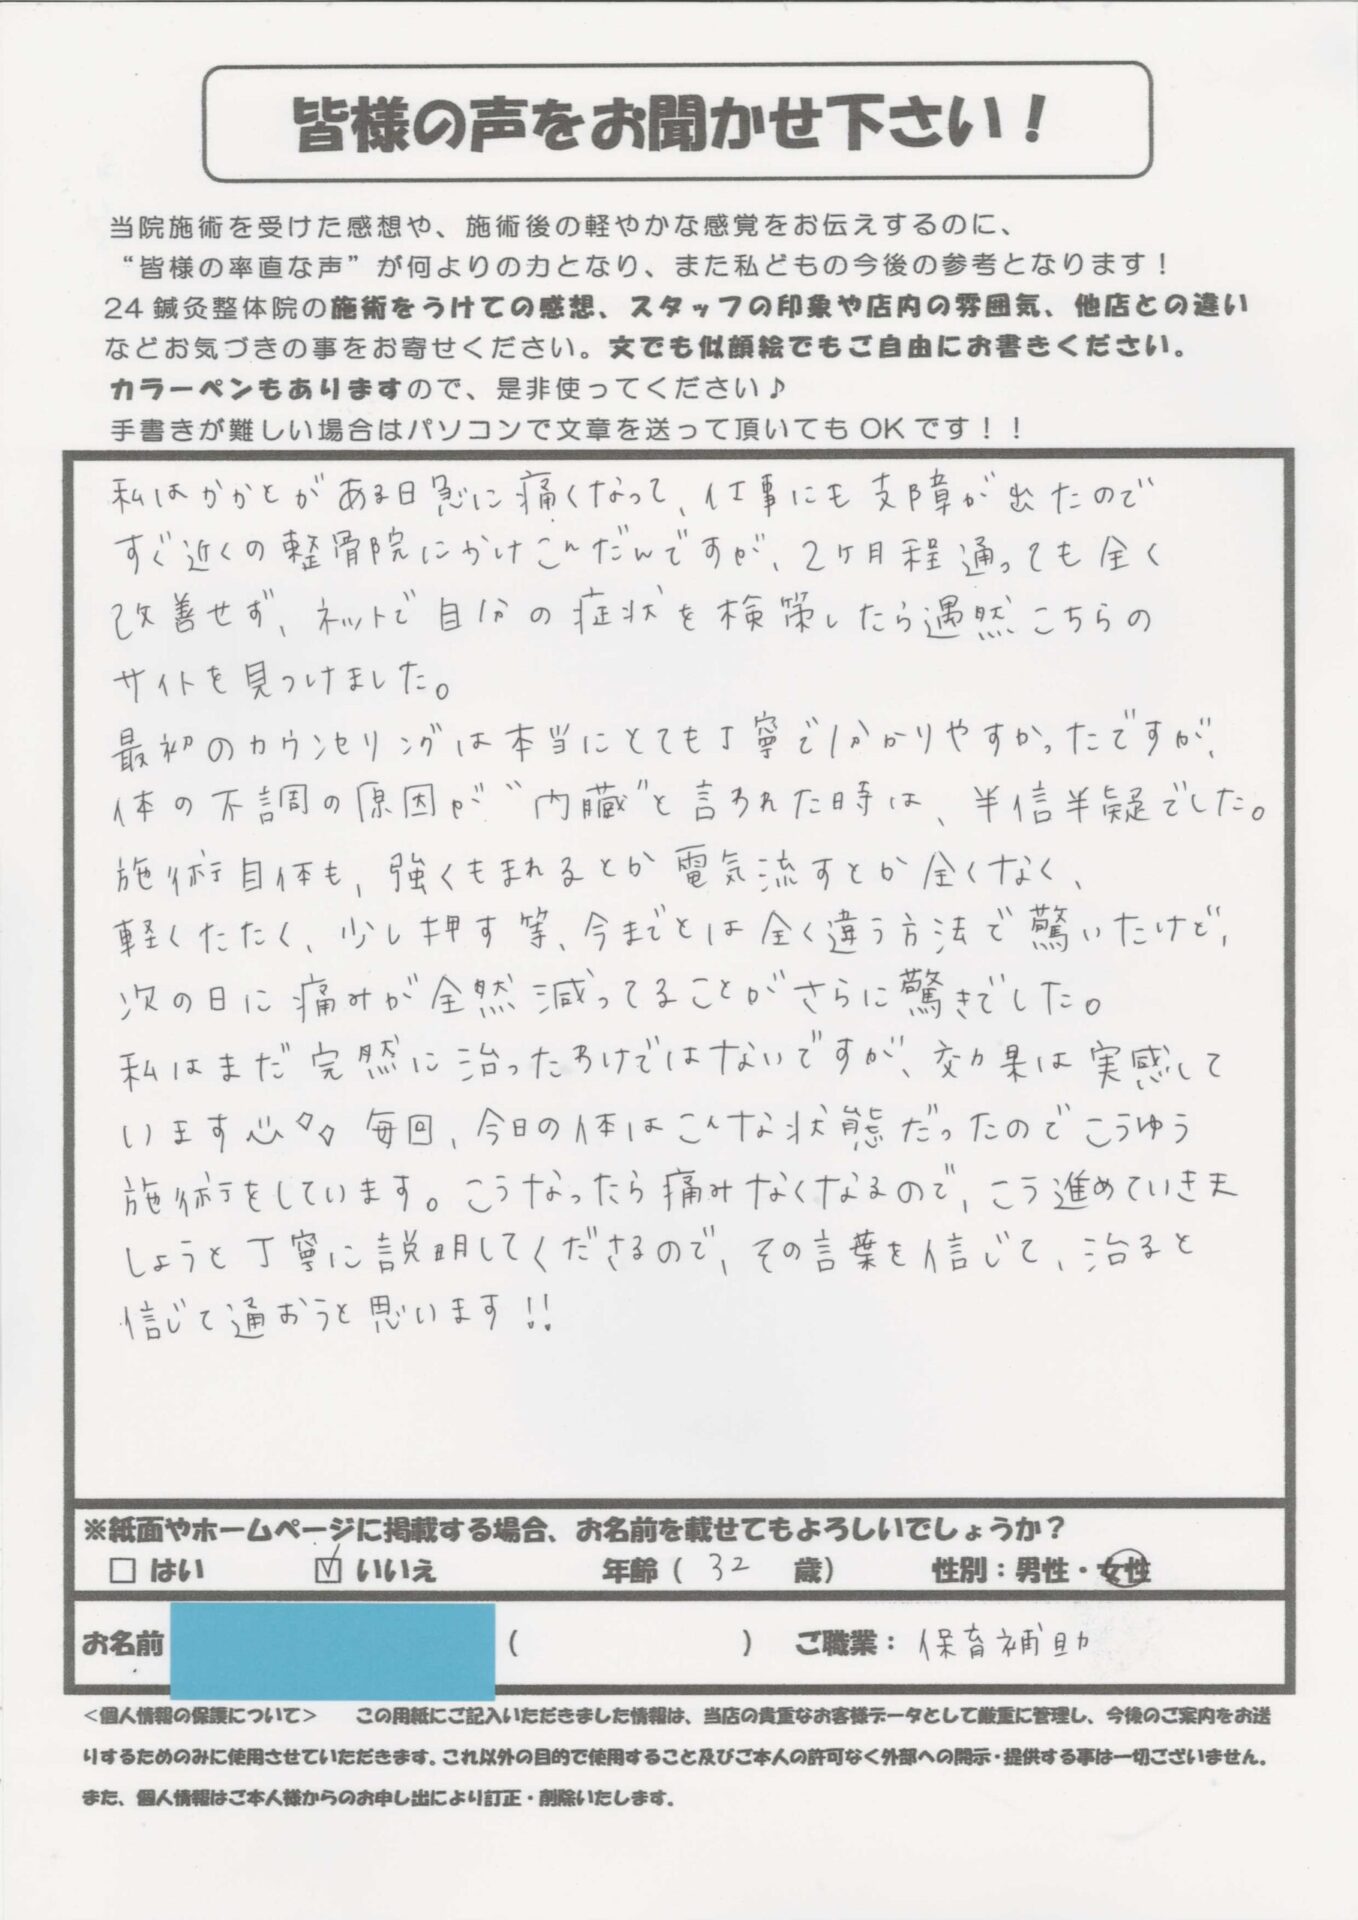 皆様の声をお聞かせ下さい！
当院施術を受けた感想や、施術後の軽やかな感覚をお伝えするのに、
“皆様の率直な声”が何よりの力となり、また私どもの今後の参考となります！
24鍼灸整体院の施術をうけての感想、スタッフの印象や店内の雰囲気、他店との違い
などお気づきの事をお寄せください。文でも似顔絵でもご自由にお書きください。
カラーペンもありますので、是非使ってください♪
手書きが難しい場合はパソコンで文章を送って頂いてもOKです！！
私はかかとがある日急に痛くなって、仕事にも支障が出たので
すぐ近くの整骨院にかけこんだんですが、2ヶ月程通っても全く
改善せず、ネットで自分の症状を検策したら遇然こちらの
サイトを見つけました。
最初のカウンセリングは本当にとても丁寧で分かりやすかったですが、
体の不調の原因が“内臓”と言われた時は、半信半疑でした。
施術自体も、強くもまれるとか電気流すとか全くなく、
軽くたたく、少し押す等、今までとは全く違う方法で驚いたけど、
次の日に痛みが全然減ってることがさらに驚きでした。
私はまだ完然に治ったわけではないですが、効果は実感して
います 毎回、今日の体はこんな状態だったのでこうゆう
施術をしています。こうなったら痛みなくなるので、こう進めていきま
しょうと丁寧に説明してくださるので、その言葉を信じて、治ると
信じて通おうと思います!!
※紙面やホームページに掲載する場合、お名前を載せてもよろしいでしょうか？
□ はい ☑ いいえ 年齢（ 32 歳） 性別：男性・女性
お名前 （ ） ご職業： 保育補助
＜個人情報の保護について＞ この用紙にご記入いただきました情報は、当店の貴重なお客様データとして厳重に管理し、今後のご案内をお送
りするためのみに使用させていただきます。これ以外の目的で使用すること及びご本人の許可なく外部への開示・提供する事は一切ございません。
また、個人情報はご本人様からのお申し出により訂正・削除いたします。